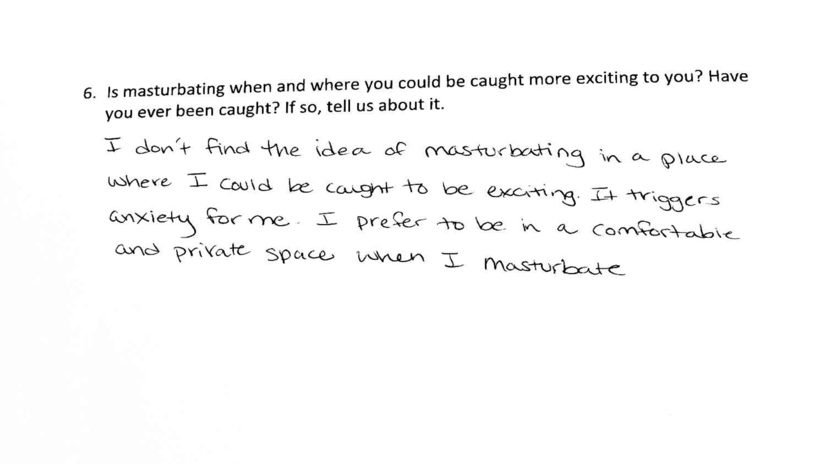 6. Is masturbating when and where you could be caught more exciting to you? Have
you ever been caught? If so, tell us about it.
I don't find the idea of masturbating in a place
where I could be caught to be exciting. It triggers
anxiety for me. I prefer to be in a comfortable
and private space when I masturbate